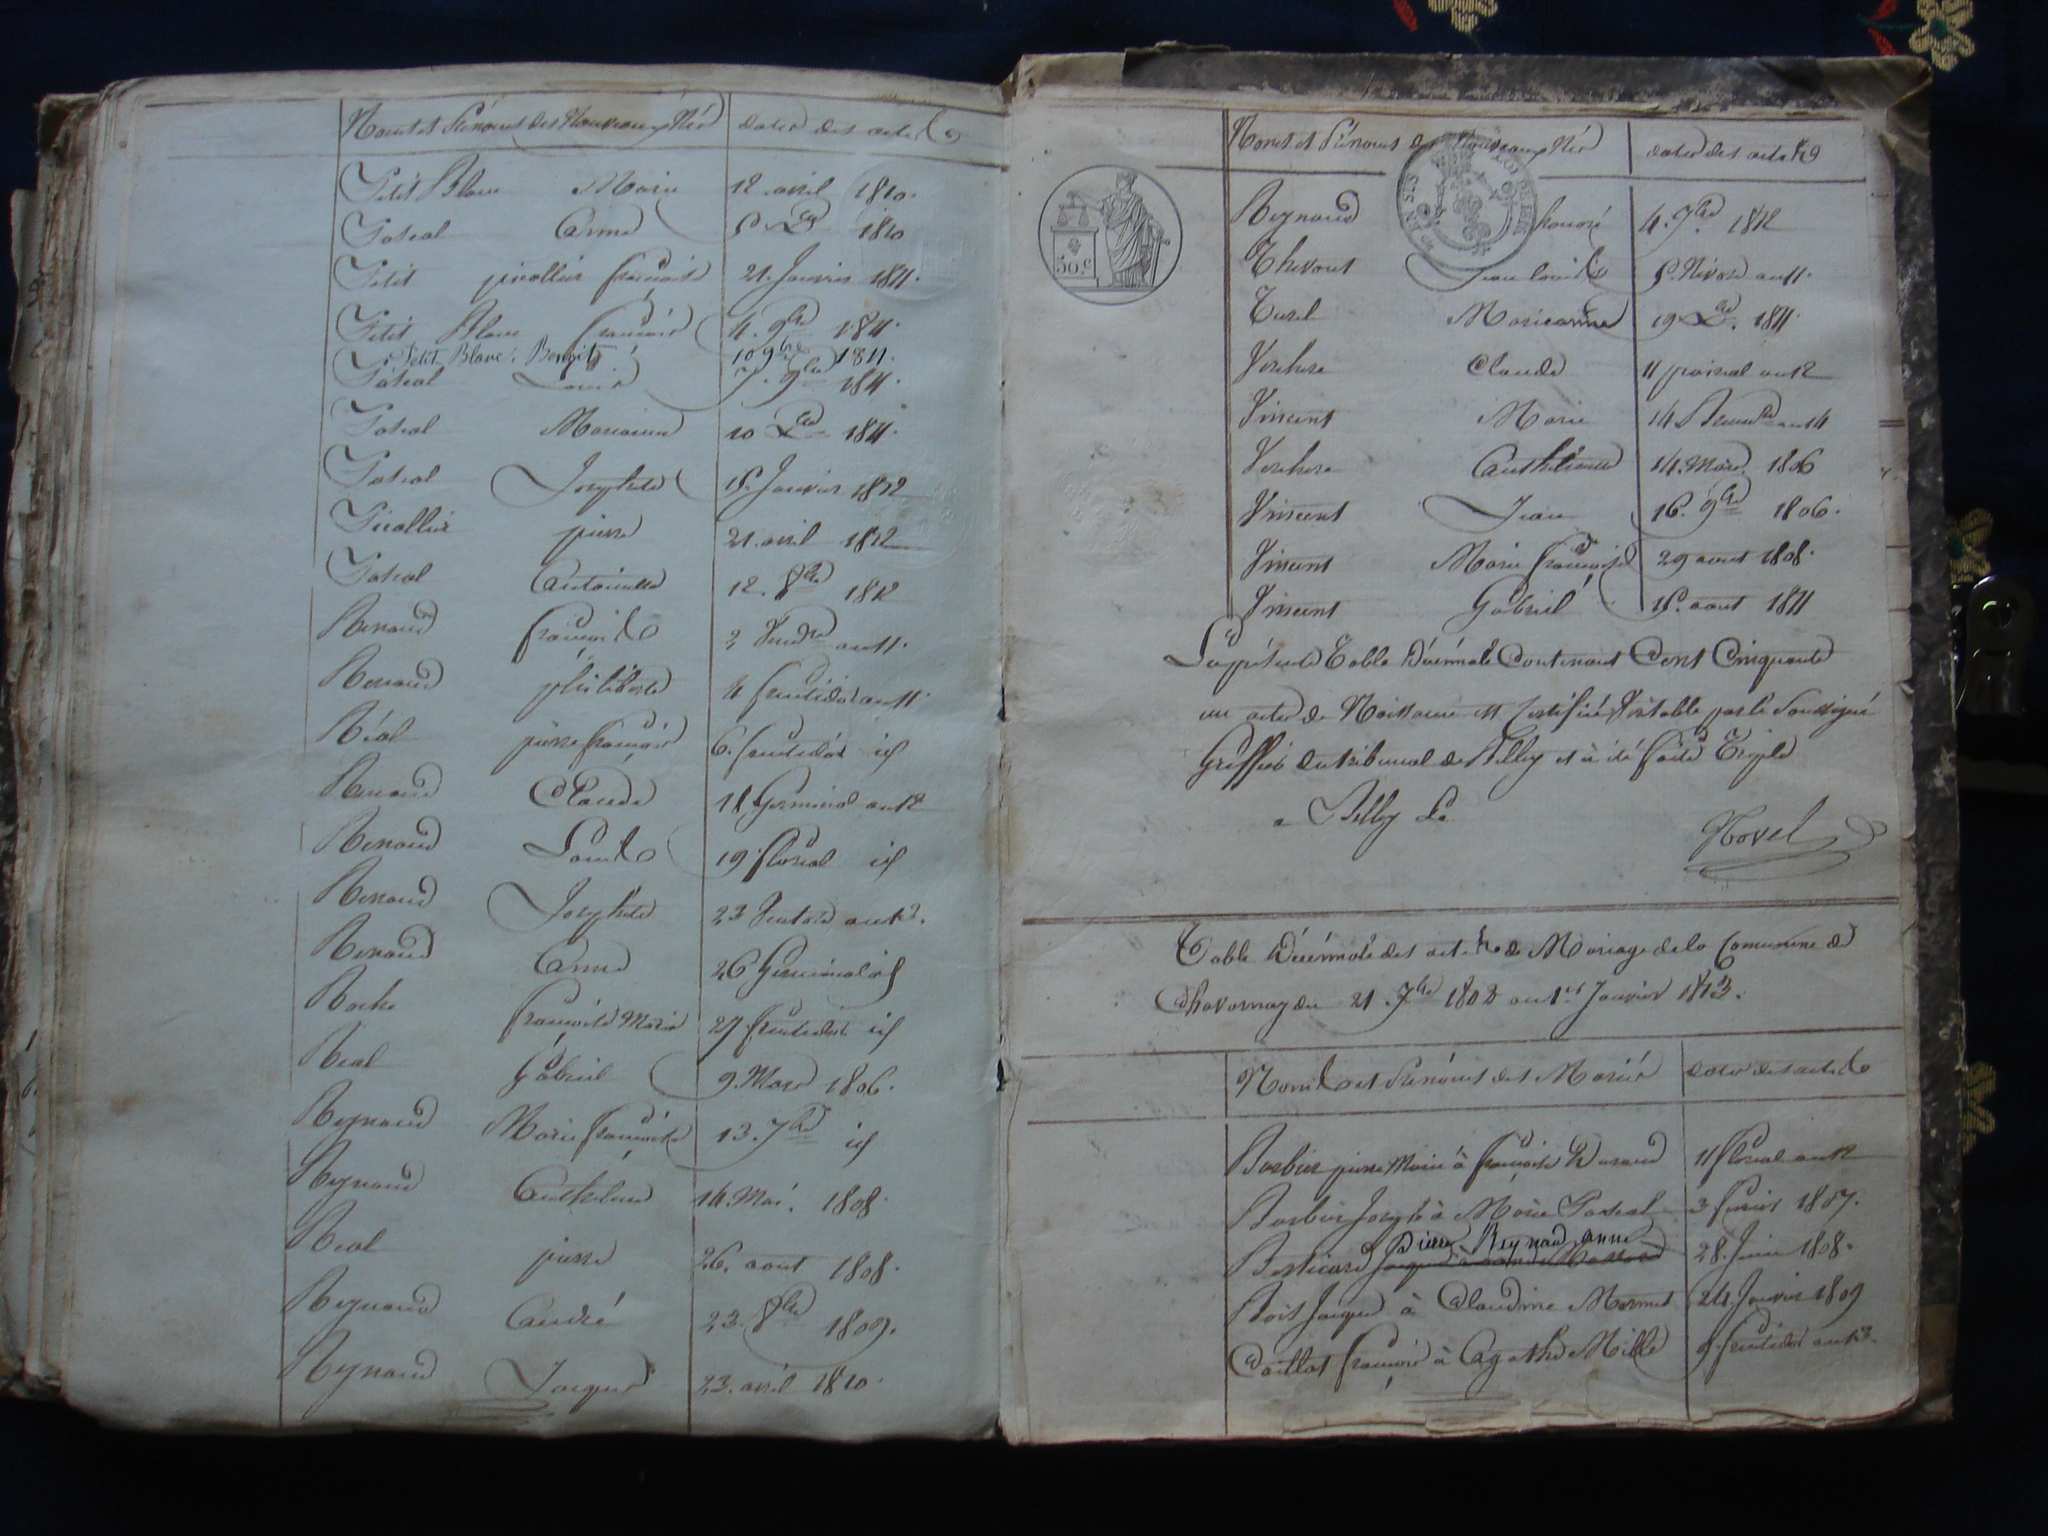 Noms et Prénoms des Nouveaux Nés dates des actes
Petit Blanc Marie 12 avril 1810.
Pascal Anne 1810
Petit picollier françoise 21. Janvier 1811.
Petit Blanc françois 4. 9bre 1811.
Petit Blanc. Benoit 10 9bre 1811.
Pascal Louise 7. 9bre 1811.
Pascal Marianne 10 Xbre 1811.
Pascal Josephte 15. Janvier 1812
Picollier pierre 21. avril 1812
Pascal Antoinette 12. 8bre 1812
Renaud françoise 2 Vendre an 11.
Renaud philiberte 4 fructidor an 11.
Réal pierre françois 6. fructidor id
Renaud Claude 11 Germinal an 12
Renaud Louise 19 floréal id
Renaud Josephte 23 Ventose an 13.
Renaud Anne 26 Germinal id
Roche françoise Marie 27 fructidor id
Real Gabriel 9 Mars 1806.
Reynaud Marie françoise 13. 7bre id
Reynaud Anthelme 14. Mai. 1808.
Real pierre 26. aout 1808.
Reynaud André 23. 8bre 1809.
Reynaud Jacques 23. avril 1810.
Noms et Prénoms des Nouveaux Nés dates des actes
50.c
Reynaud honoré 4. 7bre 1812
Thevent Jean Louis 5. Nivose an 11.
Turel Marieanne 19 Xbre. 1811.
Verchere Claude 11 prairial an 12
Vincent Marie 14 Brumre an 14
Verchere Anthelmette 14. Mars. 1806
Vincent Jean 16. 9bre 1806.
Vincent Marie françoise 29 aout 1808.
Vincent Gabriel 15. aout 1811
La présente Table Décennale Contenant Cent Cinquante
un actes de Naissance est Certifiée Véritable par le Soussigné
Greffier du tribunal de Belley et à été faite Triple
a Belley Le
Novel
Table Décennale des actes de Mariage de la Commune de
Chavornay du 21. 7bre 1802 au 1er Janvier 1813.
Noms et Prénoms des Mariés dates des actes
Barbier pierre Marie à françoise Durand 11 floréal an 12
Barbier Joseph à Marie Pascal 3 fevrier 1807.
Pierre Reynaud Anne
Berlicard Jacques à 28. Juin 1808.
Bois Jacques à Claudine Mermet 24. Janvier 1809
Caillat françois à Agathe Mille 9. fructidor an 13.